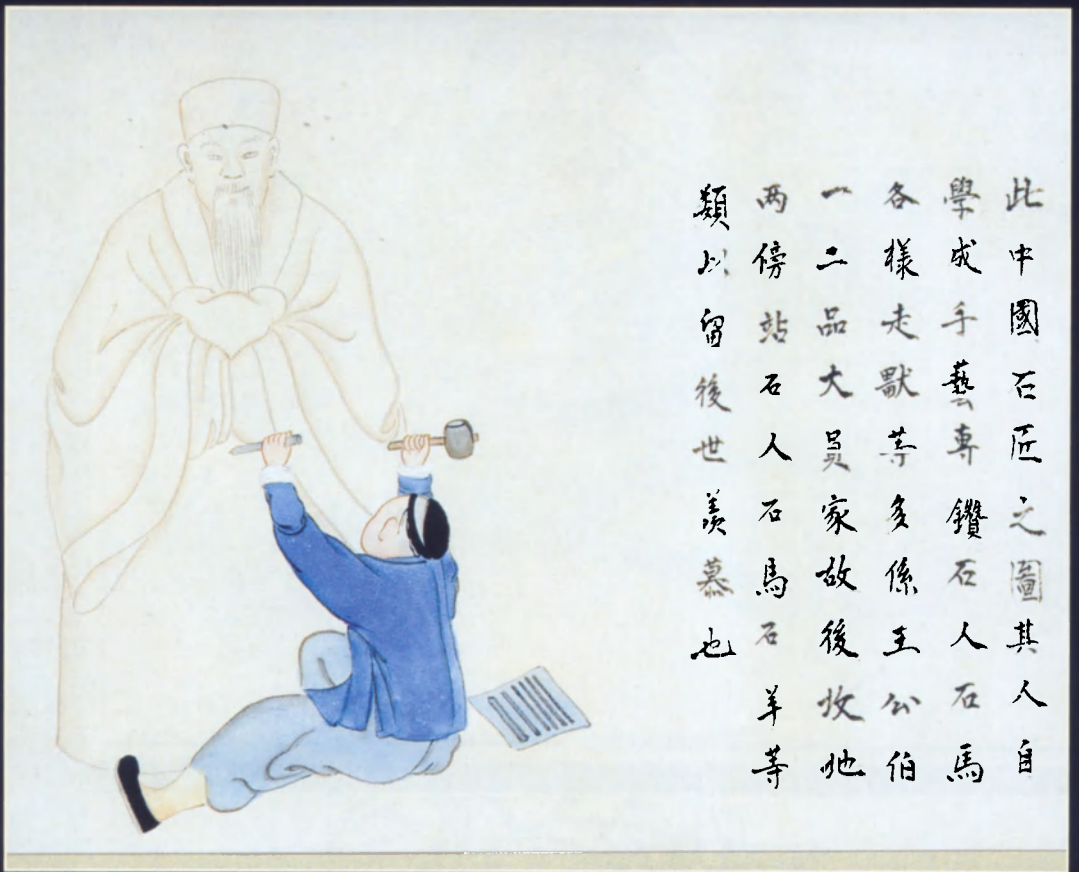 此中國石匠之圖其人自
學成手藝專鑽石人石馬
各樣走獸等多係王公伯
一二品大員家故後坟地
两傍站石人石馬石羊等
類以留後世羨慕也